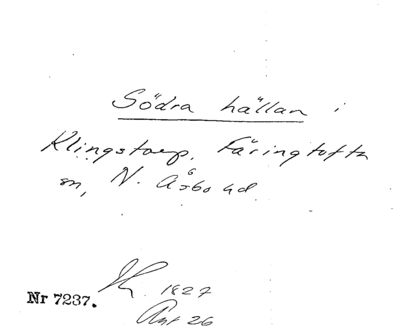 Södra hällan i
Klingstorp, Färingtofta
sn, N. Åsbo hd.
1827
Nr 7237.
Ant 26